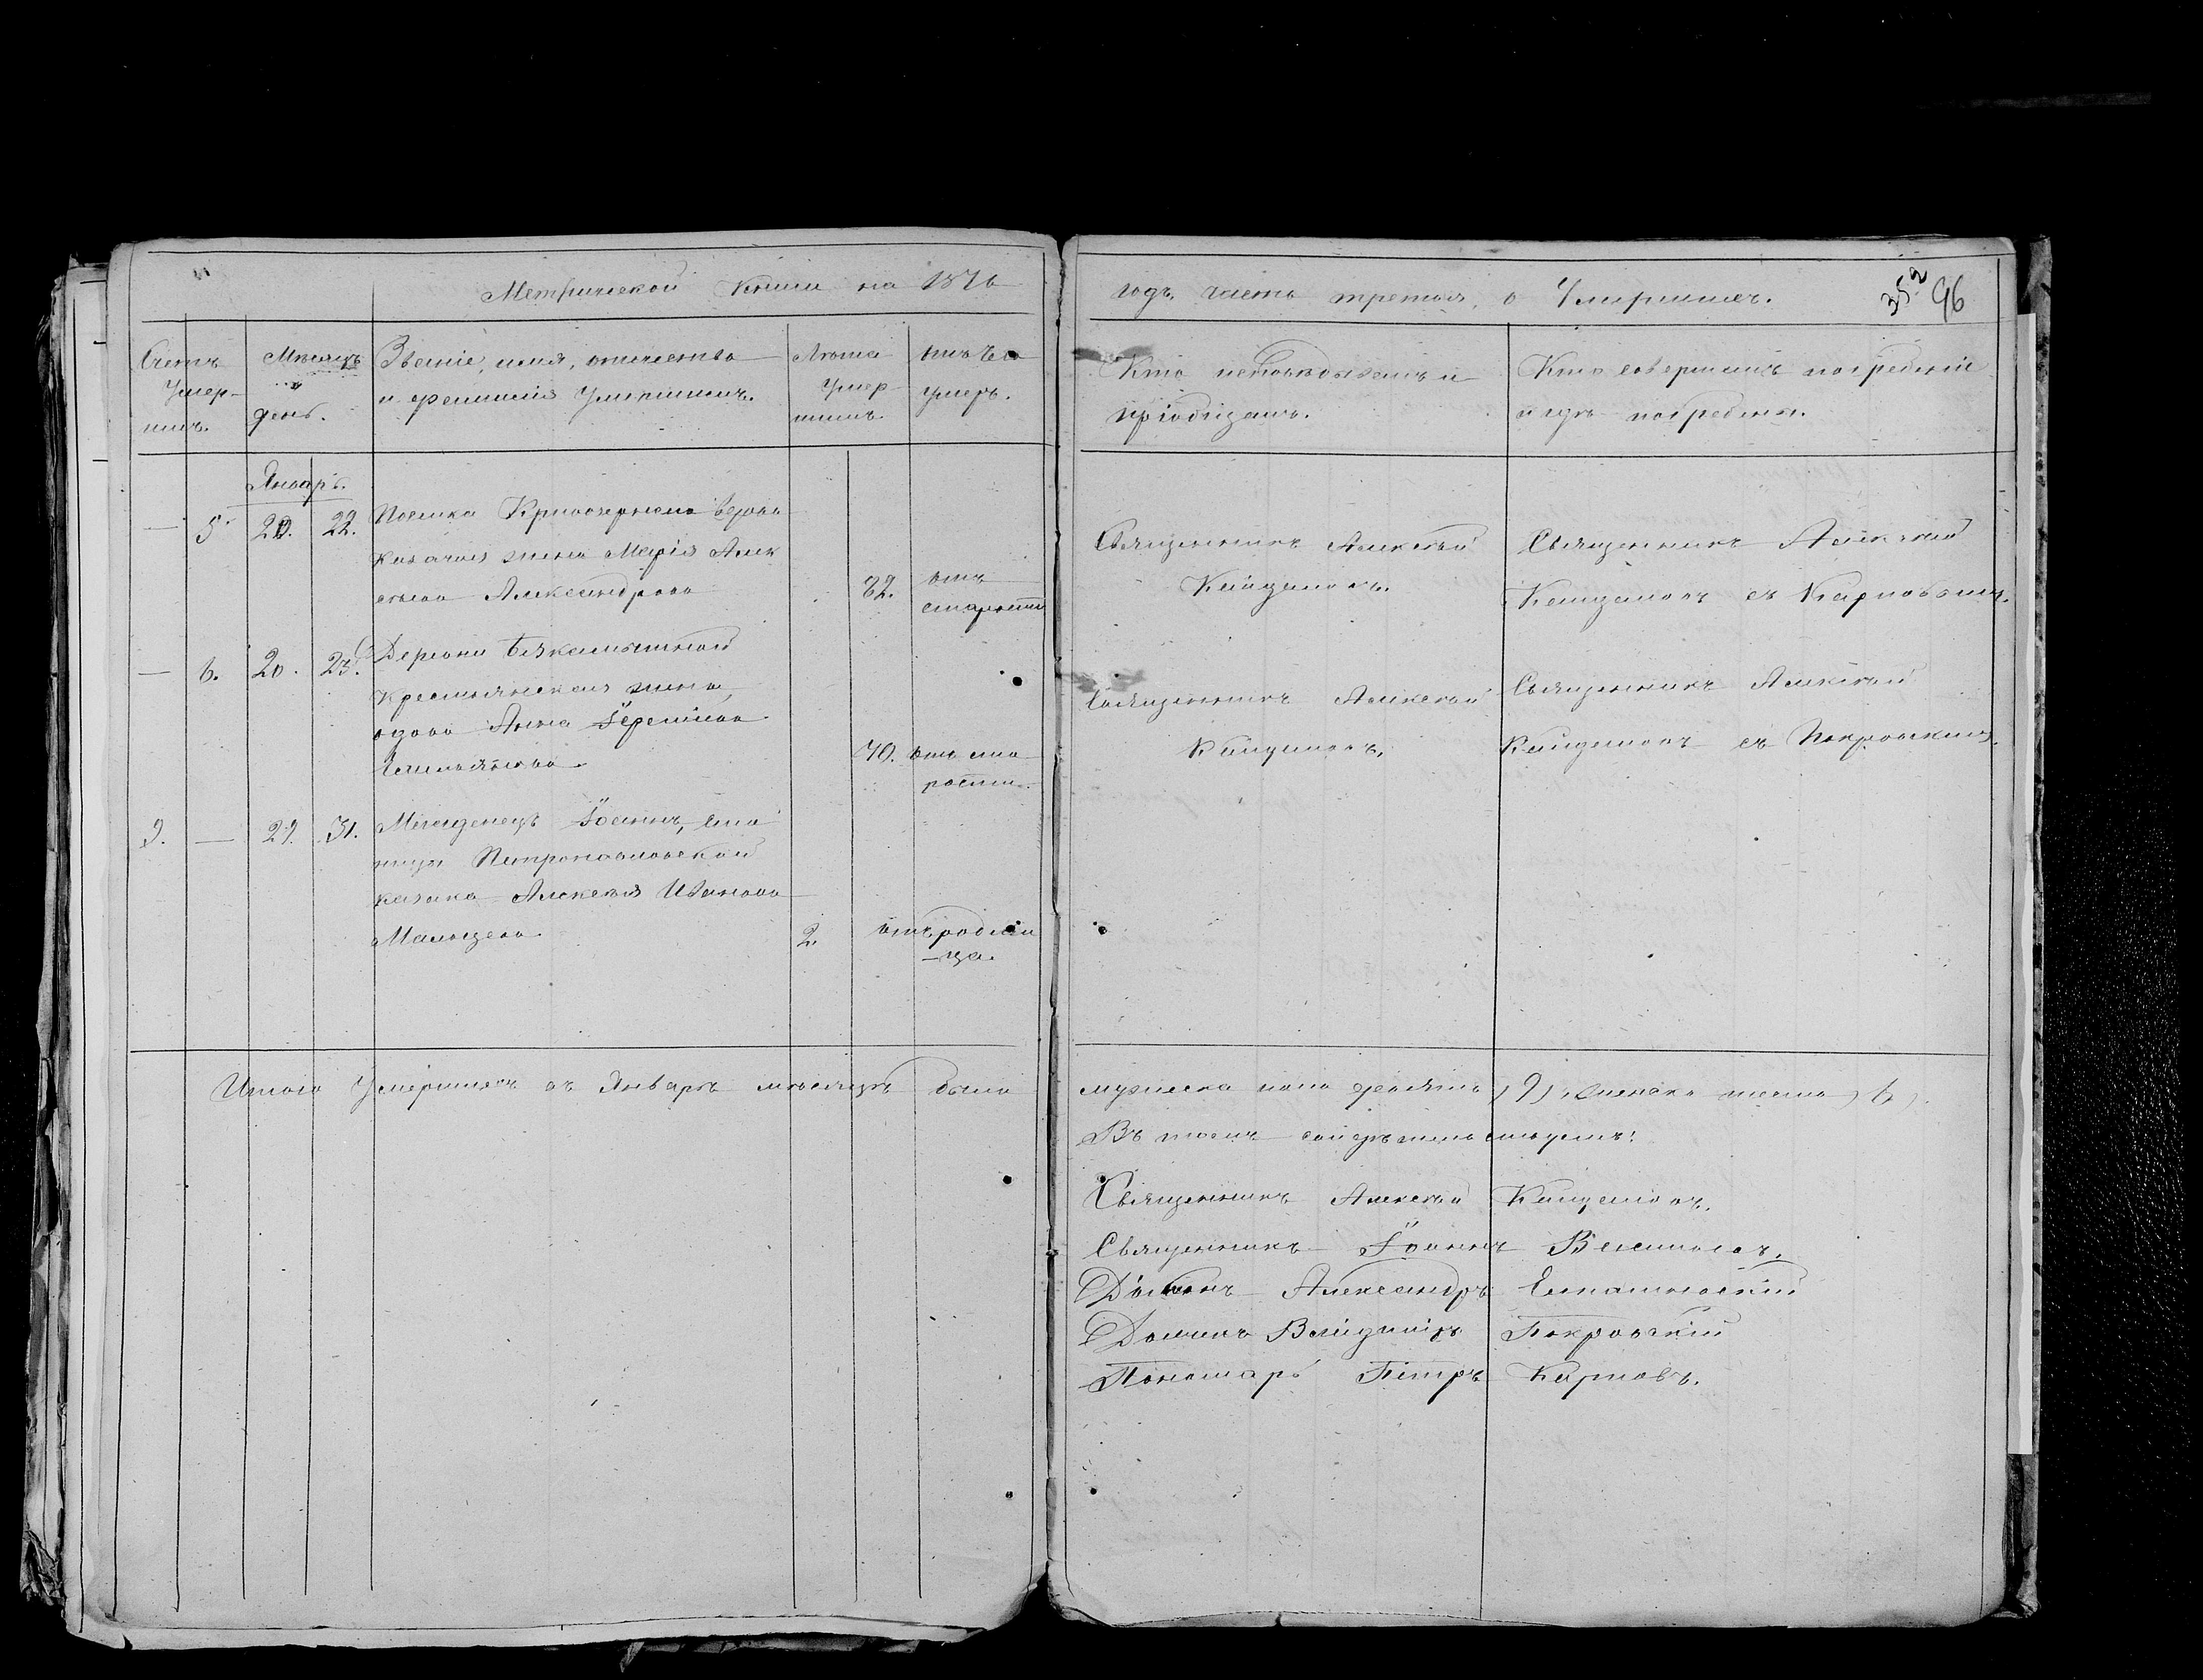 Метрической книги на 1876
годъ, часть третья, о Умершихъ.
352 96
Счетъ
Умер-
шихъ.
Мѣсяцъ
и
день.
Званіе, имя, отчество
и фамилія Умершихъ.
Лѣта
Умер-
шихъ.
отъ чего
умеръ.
Кто исповѣдывалъ и
пріобщалъ.
Кто совершалъ погребеніе
и гдѣ погребены.
Январь.
— 5 20. 22. Поселка Кривоозернаго вдова
казачья жена Марія Алек
сѣева Александрова
82. отъ
старости
Священникъ Алексѣй
Священникъ Алексѣй
съ Карповымъ.
— 6. 20. 23. Деревни
крестьянская жена,
вдова Анна
Емельянова.
70. отъ ста
рости.
Священникъ Алексѣй
Священникъ Алексѣй
съ Покровскимъ.
9. — 29. 31. Младенецъ Іоаннъ, ста
ницы Петропавловской
казака Алексѣя Иванова
Мальцева.
2. отъ родим
ца.
Итого Умершихъ въ Январѣ мѣсяцѣ было
мужеска пола девять (9), женска шесть (6).
Въ томъ свидѣтельствуемъ:
Священникъ Алексѣй
Священникъ Іоаннъ
Діаконъ Александръ
Дьячекъ Владиміръ Покровскій
Пономарь Петръ Карповъ.